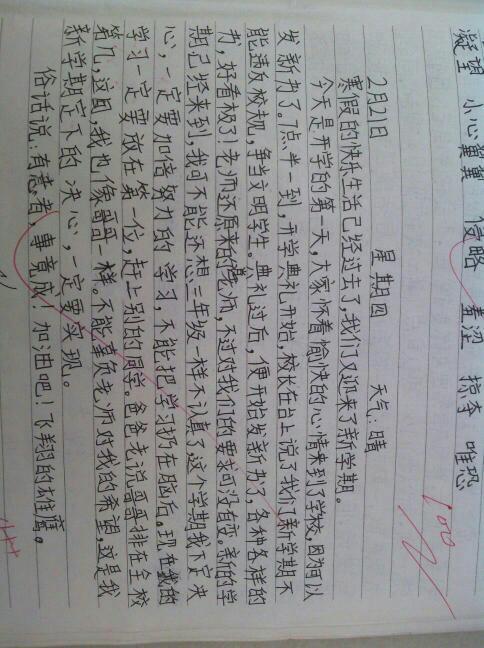 凝望 小心翼翼 侵略 羞涩 掠夺 唯恐
100
2月21日 星期四 天气:晴
寒假的快乐生活已经过去了,我们又迎来了新学期。
今天是开学的第一天,大家怀着愉快的心情来到了学校,因为可以
发新书了。7点半一到,开学典礼开始,校长在台上说了我们新学期不
能违反校规,争当文明学生。典礼过后,便开始发新书了,各种各样的
书,好看极了!老师还原来的老师,不过对我们的要求可没有变。新的学
期已经来到,我可不能还想三年级一样不认真了,这个学期我下定决
心,一定要加倍努力的学习,不能把学习扔在脑后。现在我的
学习一定要放在第一位,赶上别的同学。爸爸老说哥哥排在全校
第几,这回,我也像哥哥一样。不能辜负老师对我的希望,这是我
新学期定下的决心,一定要实现。
俗话说:有志者,事竟成!加油吧!飞翔的雄鹰。